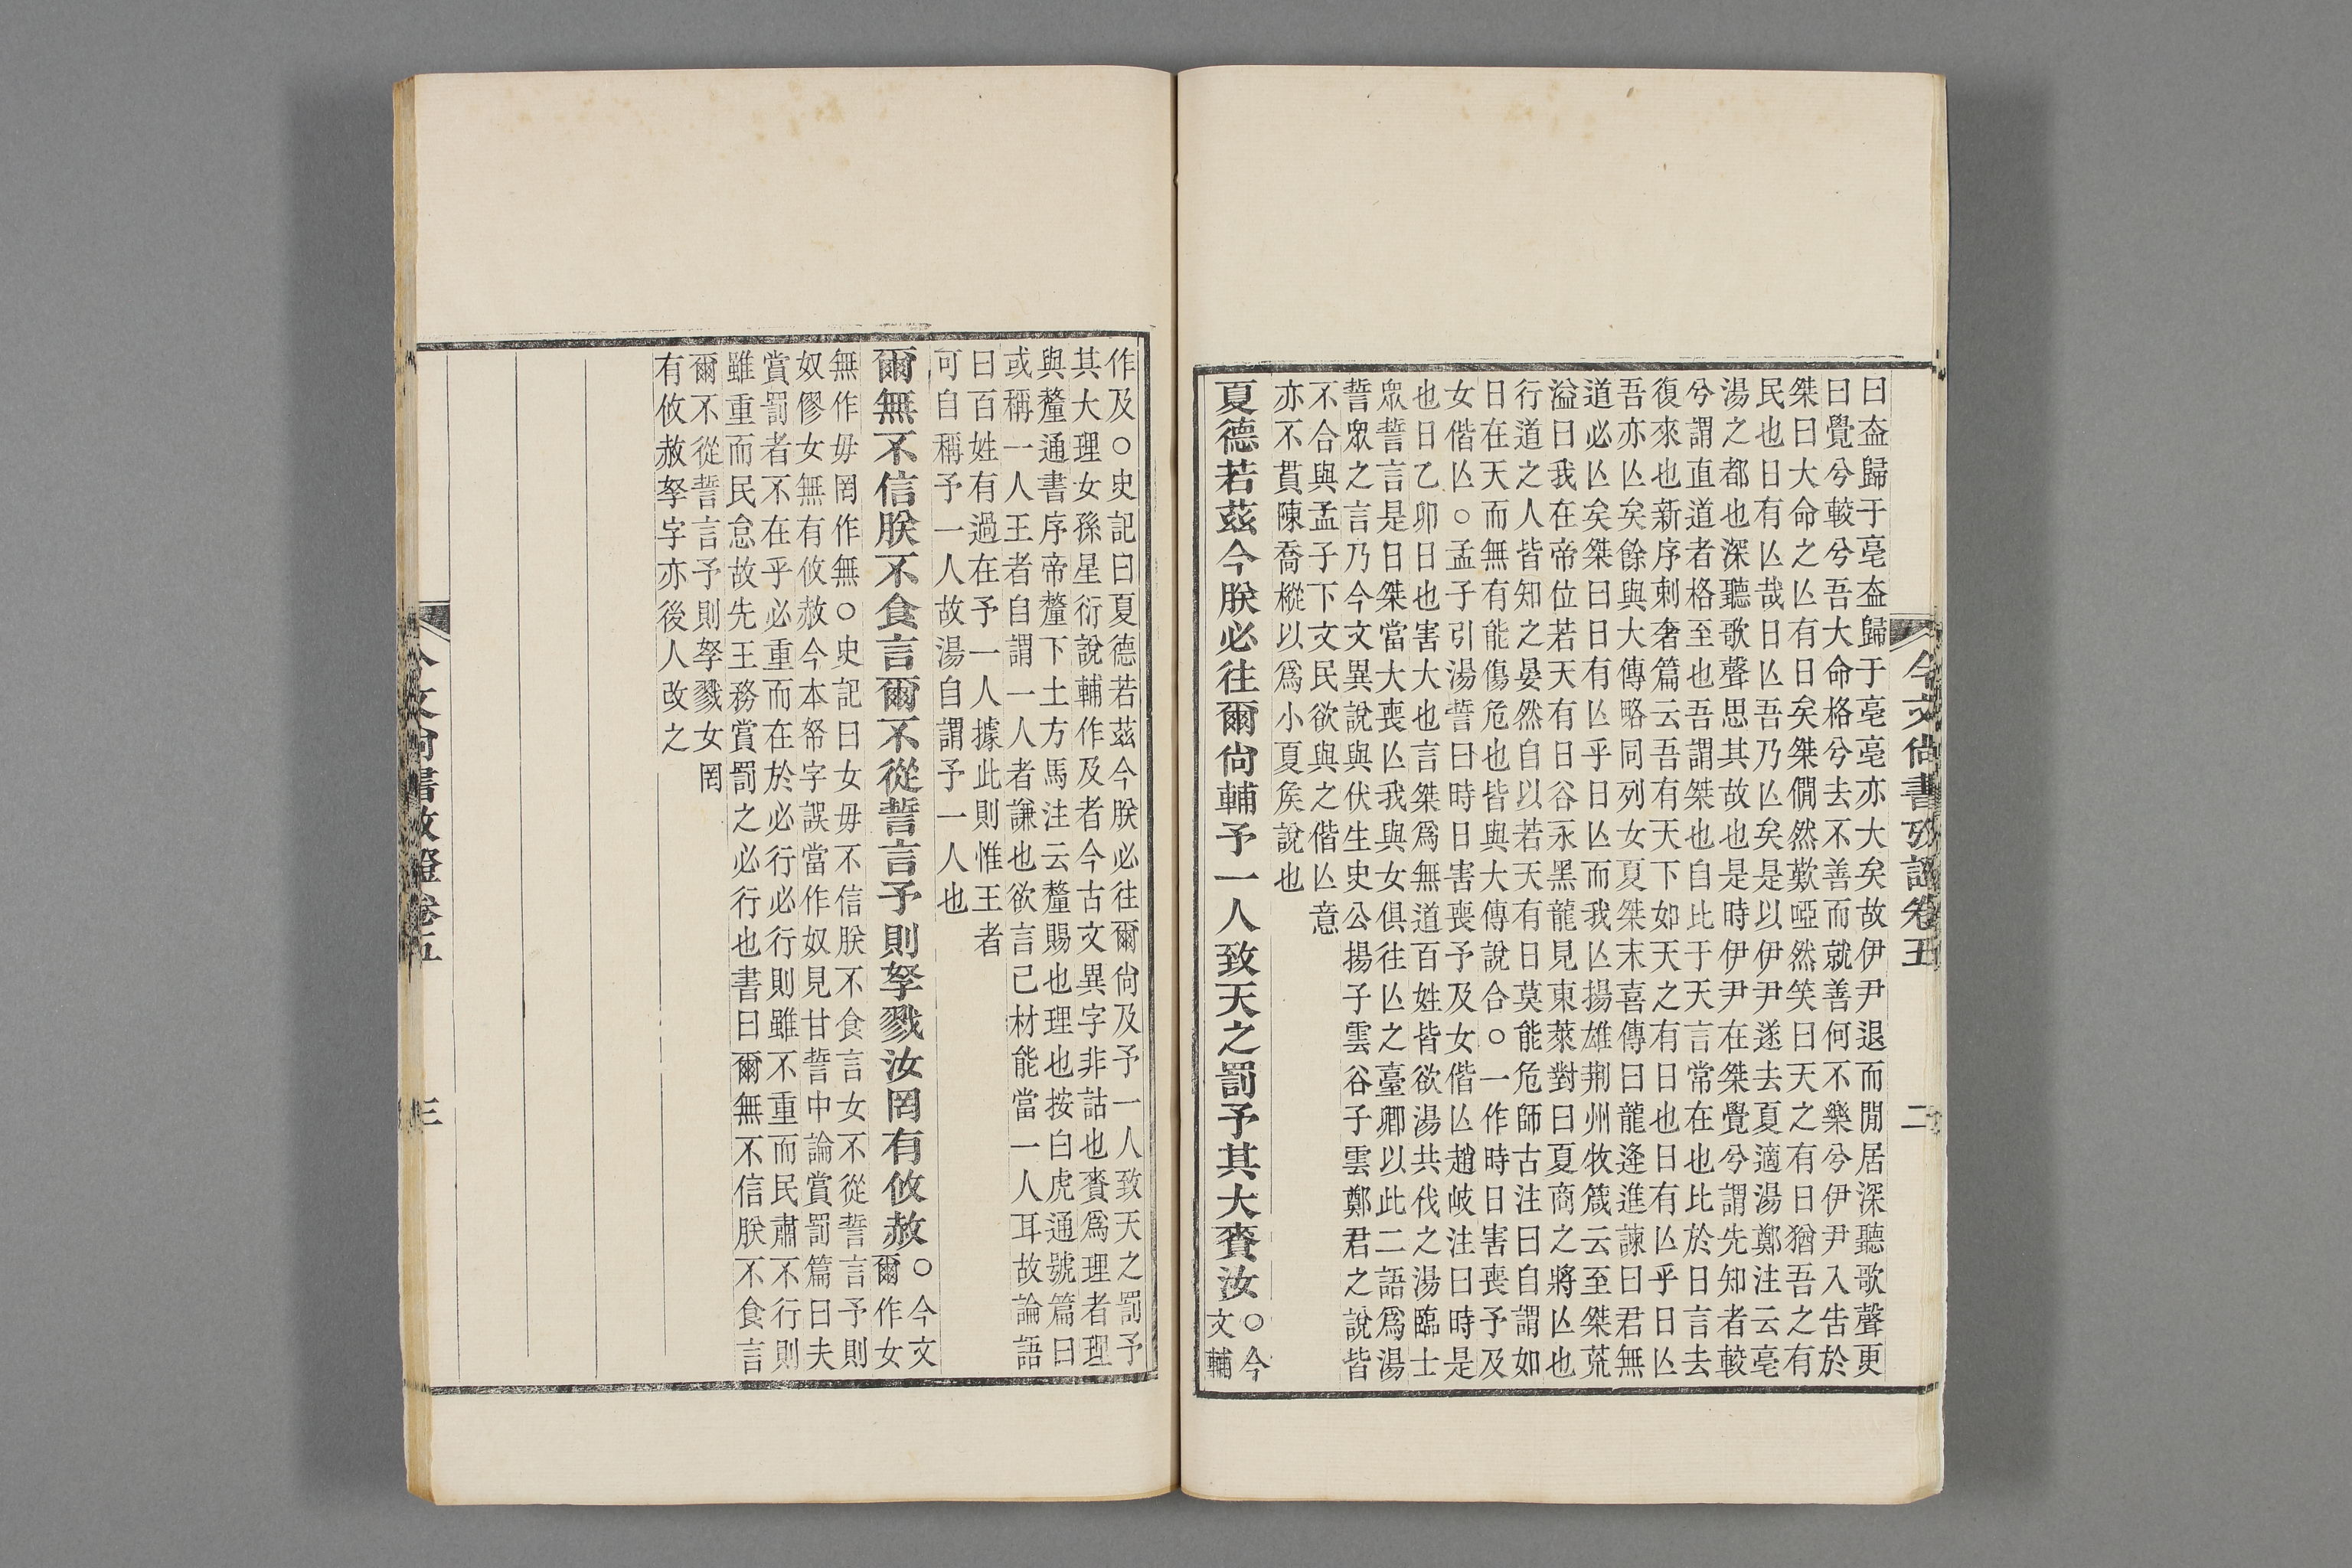 今文尚書攷證卷五
二
曰盍歸于亳盍歸于亳亳亦大矣故伊尹退而閒居深聽歌聲更
曰覺兮較兮吾大命格兮去不善而就善何不樂兮伊尹入告於
桀曰大命之亾有日矣桀僩然歎啞然笑曰天之有日猶吾之有
民也日有亾哉日亾吾乃亾矣是以伊尹遂去夏適湯鄭注云亳
湯之都也深聽歌聲思其故也是時伊尹在桀覺兮謂先知者較
兮謂直道者格至也吾謂桀也自比于天言常在也比於日言去
復來也新序刺奢篇云吾有天下如天之有日也日有亾乎日亾
吾亦亾矣餘與大傳略同列女夏桀末喜傳曰龍逄進諫曰君無
道必亾矣桀曰日有亾乎日亾而我亾揚雄荆州牧箴云至桀荒
溢曰我在帝位若天有日谷永黑龍見東萊對曰夏商之將亾也
行道之人皆知之晏然自以若天有日莫能危師古注曰自謂如
日在天而無有能傷危也皆與大傳說合○一作時日害喪予及
女偕亾○孟子引湯誓曰時日害喪予及女偕亾趙岐注曰時是
也日乙卯日也害大也言桀爲無道百姓皆欲湯共伐之湯臨士
眾誓言是日桀當大喪亾我與女俱往亾之臺卿以此二語爲湯
誓眾之言乃今文異說與伏生史公揚子雲谷子雲鄭君之說皆
不合與孟子下文民欲與之偕亾意
亦不貫陳喬樅以爲小夏矦說也
夏德若茲今朕必往爾尙輔予一人致天之罰予其大賚汝○今
文輔
作及○史記曰夏德若茲今朕必往爾尙及予一人致天之罰予
其大理女孫星衍說輔作及者今古文異字非詁也賚爲理者理
與釐通書序帝釐下土方馬注云釐賜也理也按白虎通號篇曰
或稱一人王者自謂一人者謙也欲言己材能當一人耳故論語
曰百姓有過在予一人據此則惟王者
可自稱予一人故湯自謂予一人也
爾無不信朕不食言爾不從誓言予則孥戮汝罔有攸赦○今文
爾作女
無作毋罔作無○史記曰女毋不信朕不食言女不從誓言予則
奴僇女無有攸赦今本帑字誤當作奴見甘誓中論賞罰篇曰夫
賞罰者不在乎必重而在於必行必行則雖不重而民肅不行則
雖重而民怠故先王務賞罰之必行也書曰爾無不信朕不食言
爾不從誓言予則孥戮女罔
有攸赦孥字亦後人改之
今文尚書攷證卷五
三